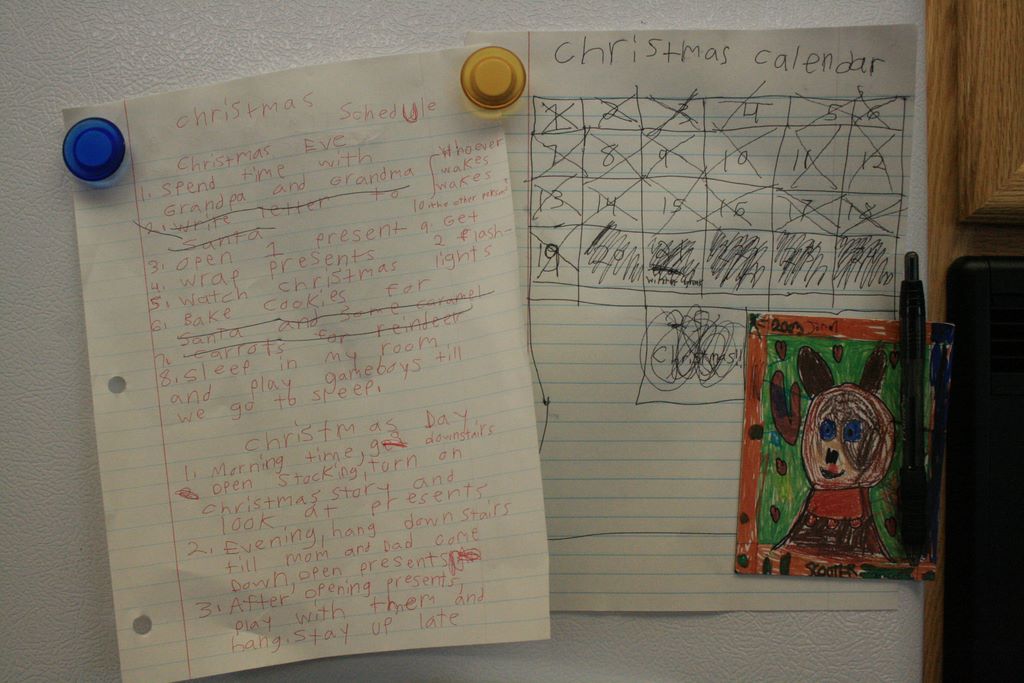 Christmas Schedule
Christmas Eve
1. Spend time with
Grandpa and Grandma
2. Write letter to
Santa
3. open 1 present
4. wrap presents
5. watch christmas lights
6. Bake cookies for
Santa and some caramel
7. carrots for reindeer
8. Sleep in my room
and play gameboys till
we go to sleep.
9. Get
2 flash-
lights
10.
Whoever
wakes
wakes
the other person
Christmas Day
1. Morning time, go downstairs
open stocking, torn on
christmas story and
look at presents
2. Evening, hang downstairs
till mom and Dad come
Down, open presents
3. After opening presents,
play with them and
hang. stay up late
christmas calendar
1 2 3 4 5 6
7 8 9 10 11 12
13 14 15 16 17 18
19
Christmas!!
2003
SCOOTER